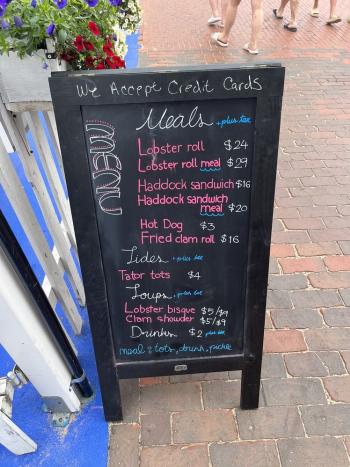 We Accept Credit Cards
MENU
Meals + plus tax
Lobster roll $24
Lobster roll meal $29
Haddock sandwich $16
Haddock sandwich
meal $20
Hot Dog $3
Fried clam roll $16
Sides + plus tax
Tator tots $4
Soups + plus tax
Lobster bisque $5/$9
Clam showder $5/$9
Drinks $2 plus tax
meal = tots, drink, pickle